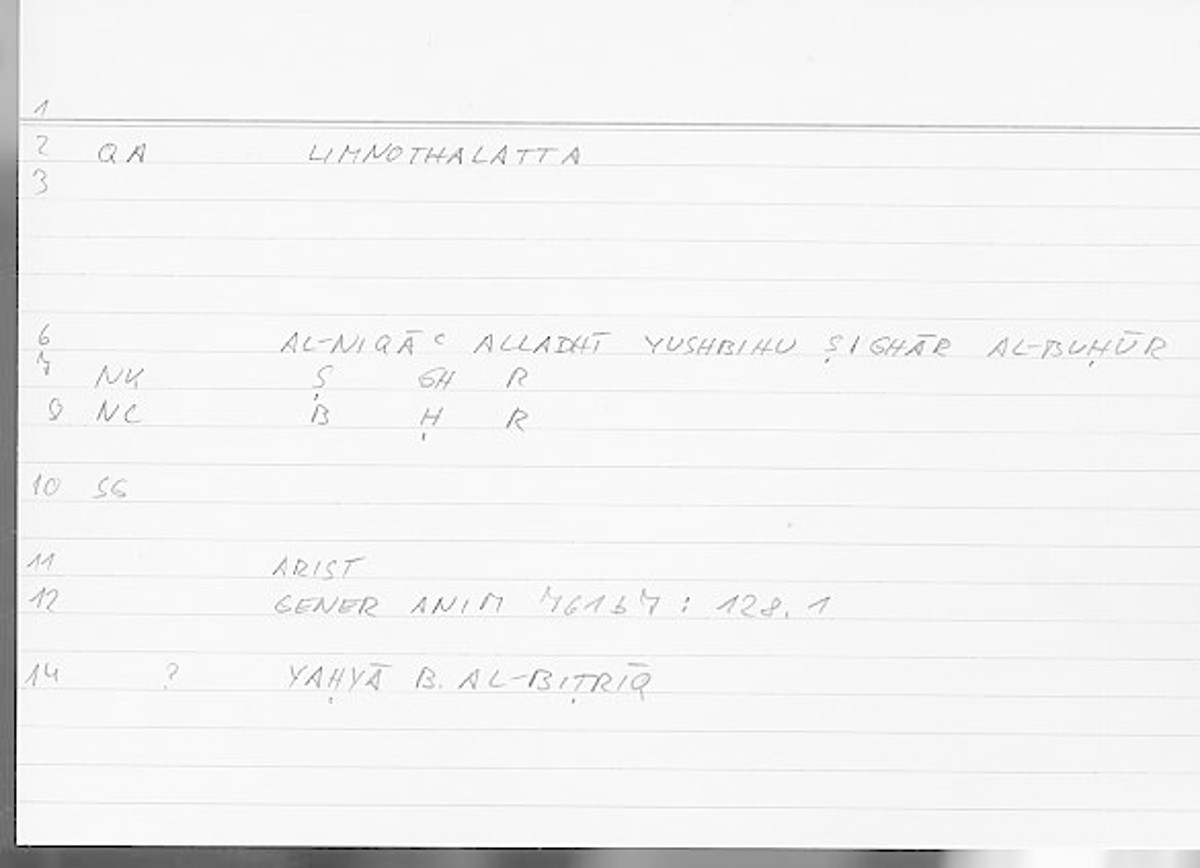 1
2 QA LIMNOTHALATTA
3
6 AL-NIQĀʿ ALLADHĪ YUSHBIHU ṢIGHĀR AL-BUḤŪR
7 NK Ṣ GH R
8 NC B Ḥ R
10 SG
11 ARIST
12 GENER ANIM 761b7 : 128.1
14 ? YAḤYĀ B. AL-BIṬRĪQ